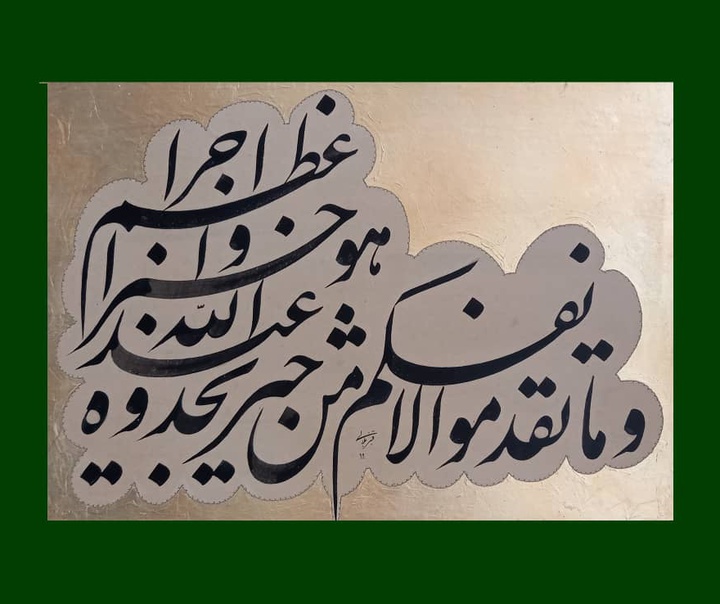 وما تقدموا لا
نفسكم من خير تجدوه
عند الله
هو خيرا و ا
عظم اجرا